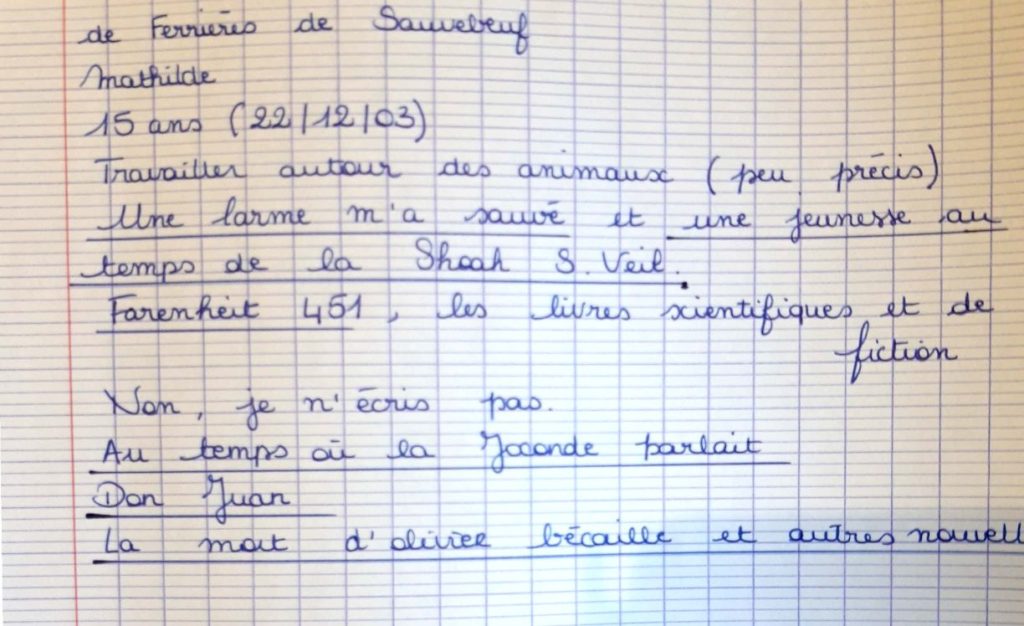 de Ferrières de Sauvebeuf
Mathilde
15 ans (22/12/03)
Travailler autour des animaux (peu précis)
Une larme m'a sauvé et une jeunesse au
temps de la Shoah S. Veil.
Farenheit 451, les livres scientifiques et de
fiction
Non, je n'écris pas.
Au temps où la Joconde parlait
Don Juan
La mort d'olivier bécaille et autres nouvell